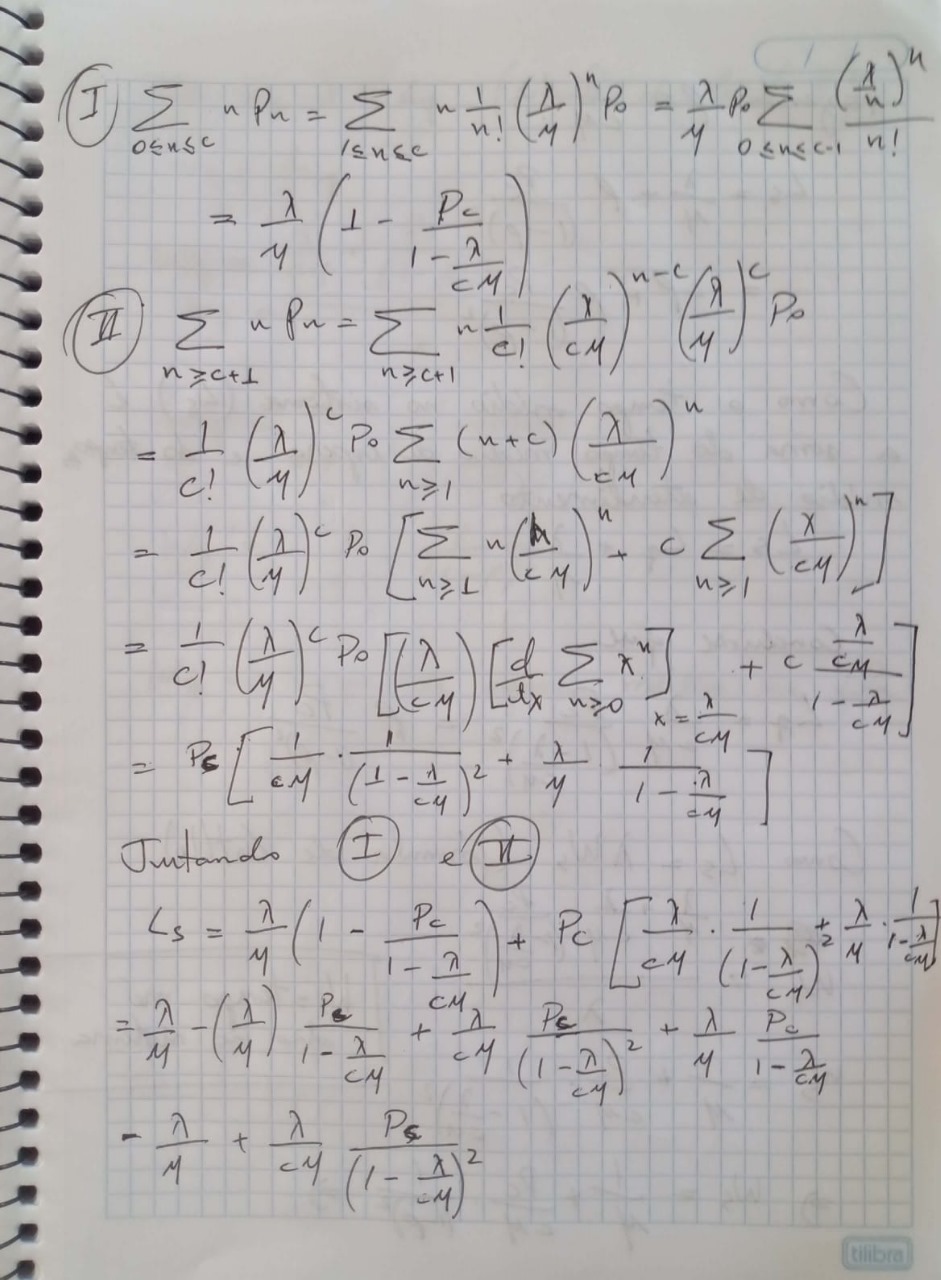 Ⓘ ∑_{0≤n≤c} n Pn = ∑_{1≤n≤c} n 1/n! (λ/μ)^n P₀ = λ/μ P₀ ∑_{0≤n≤c-1} (λ/n)^n / n!
= λ/μ (1 - Pc / (1 - λ/cμ))
Ⓘ︎Ⓘ ∑_{n≥c+1} n Pn = ∑_{n≥c+1} n 1/c! (λ/cμ)^{n-c} (λ/μ)^c P₀
= 1/c! (λ/μ)^c P₀ ∑_{n≥1} (n+c) (λ/cμ)^n
= 1/c! (λ/μ)^c P₀ [∑_{n≥1} n (λ/cμ)^n + c ∑_{n≥1} (λ/cμ)^n]
= 1/c! (λ/μ)^c P₀ [(λ/cμ) [d/dx ∑_{n≥0} x^n]_{x = λ/cμ} + c (λ/cμ) / (1 - λ/cμ)]
= Pc [1/cμ · 1/(1 - λ/cμ)² + λ/μ · 1/(1 - λ/cμ)]
Juntando Ⓘ e ⒾⒾ
Ls = λ/μ (1 - Pc / (1 - λ/cμ)) + Pc [λ/cμ · 1/(1 - λ/cμ)² + λ/μ · 1/(1 - λ/cμ)]
= λ/μ - (λ/μ) Pc/(1 - λ/cμ) + λ/cμ Pc/(1 - λ/cμ)² + λ/μ Pc/(1 - λ/cμ)
- λ/μ + λ/cμ Pc/(1 - λ/cμ)²
tilibra